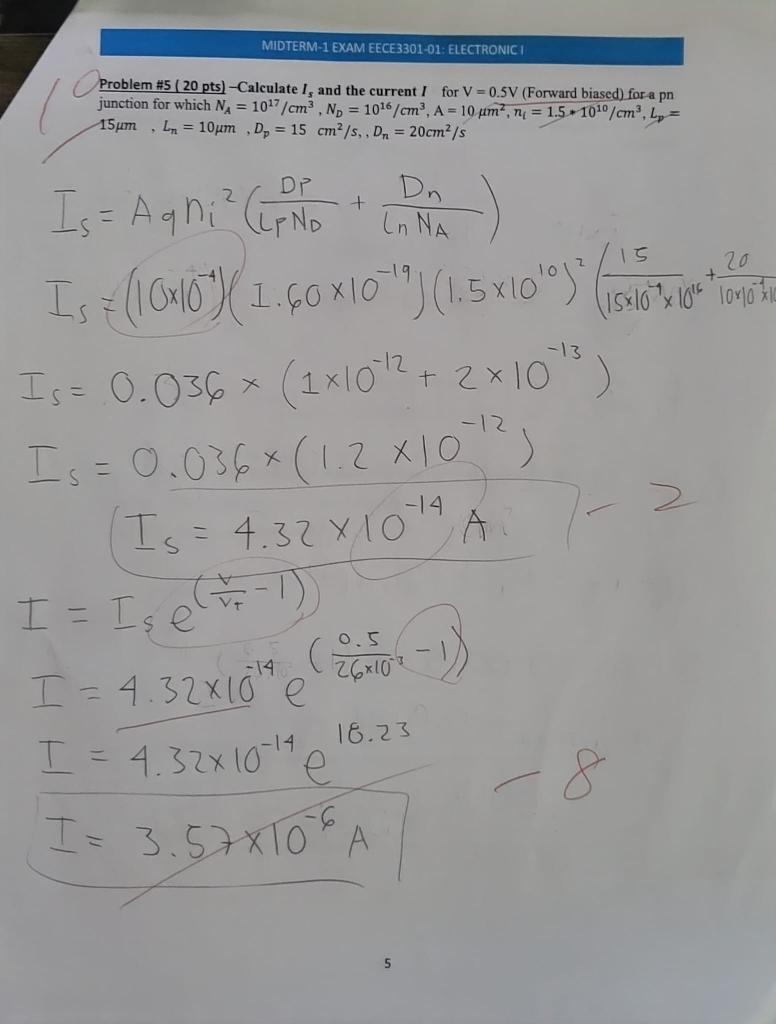 MIDTERM-1 EXAM EECE3301-01: ELECTRONIC I
10
Problem #5 ( 20 pts) –Calculate I_s and the current I for V = 0.5V (Forward biased) for a pn
junction for which N_A = 10^17/cm^3 , N_D = 10^16/cm^3, A = 10 μm^2, n_i = 1.5 * 10^10/cm^3, L_p =
15μm , L_n = 10μm , D_p = 15 cm^2/s, , D_n = 20cm^2/s
I_s = A q n_i^2 (DP/LPND + Dn/LnNA)
I_s = (10x10^-4)(1.60x10^-19)(1.5x10^10)^2 (15/15x10^-4x10^16 + 20/10x10^-4x10
I_s = 0.036 x (1x10^-12 + 2x10^-13)
I_s = 0.036x(1.2x10^-12)
I_s = 4.32x10^-14 A
- 2
I = I_s e^(V/V_T - 1)
I = 4.32x10^-14 e^(0.5/26x10^-3 - 1)
I = 4.32x10^-14 e^18.23
- 8
I = 3.57x10^-6 A
5